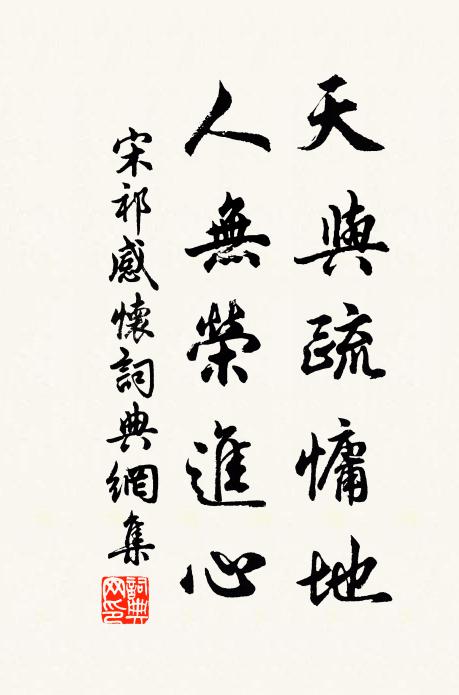 天與疏慵地
人無榮進心
宋祁感懷詞典網集
詞典網印